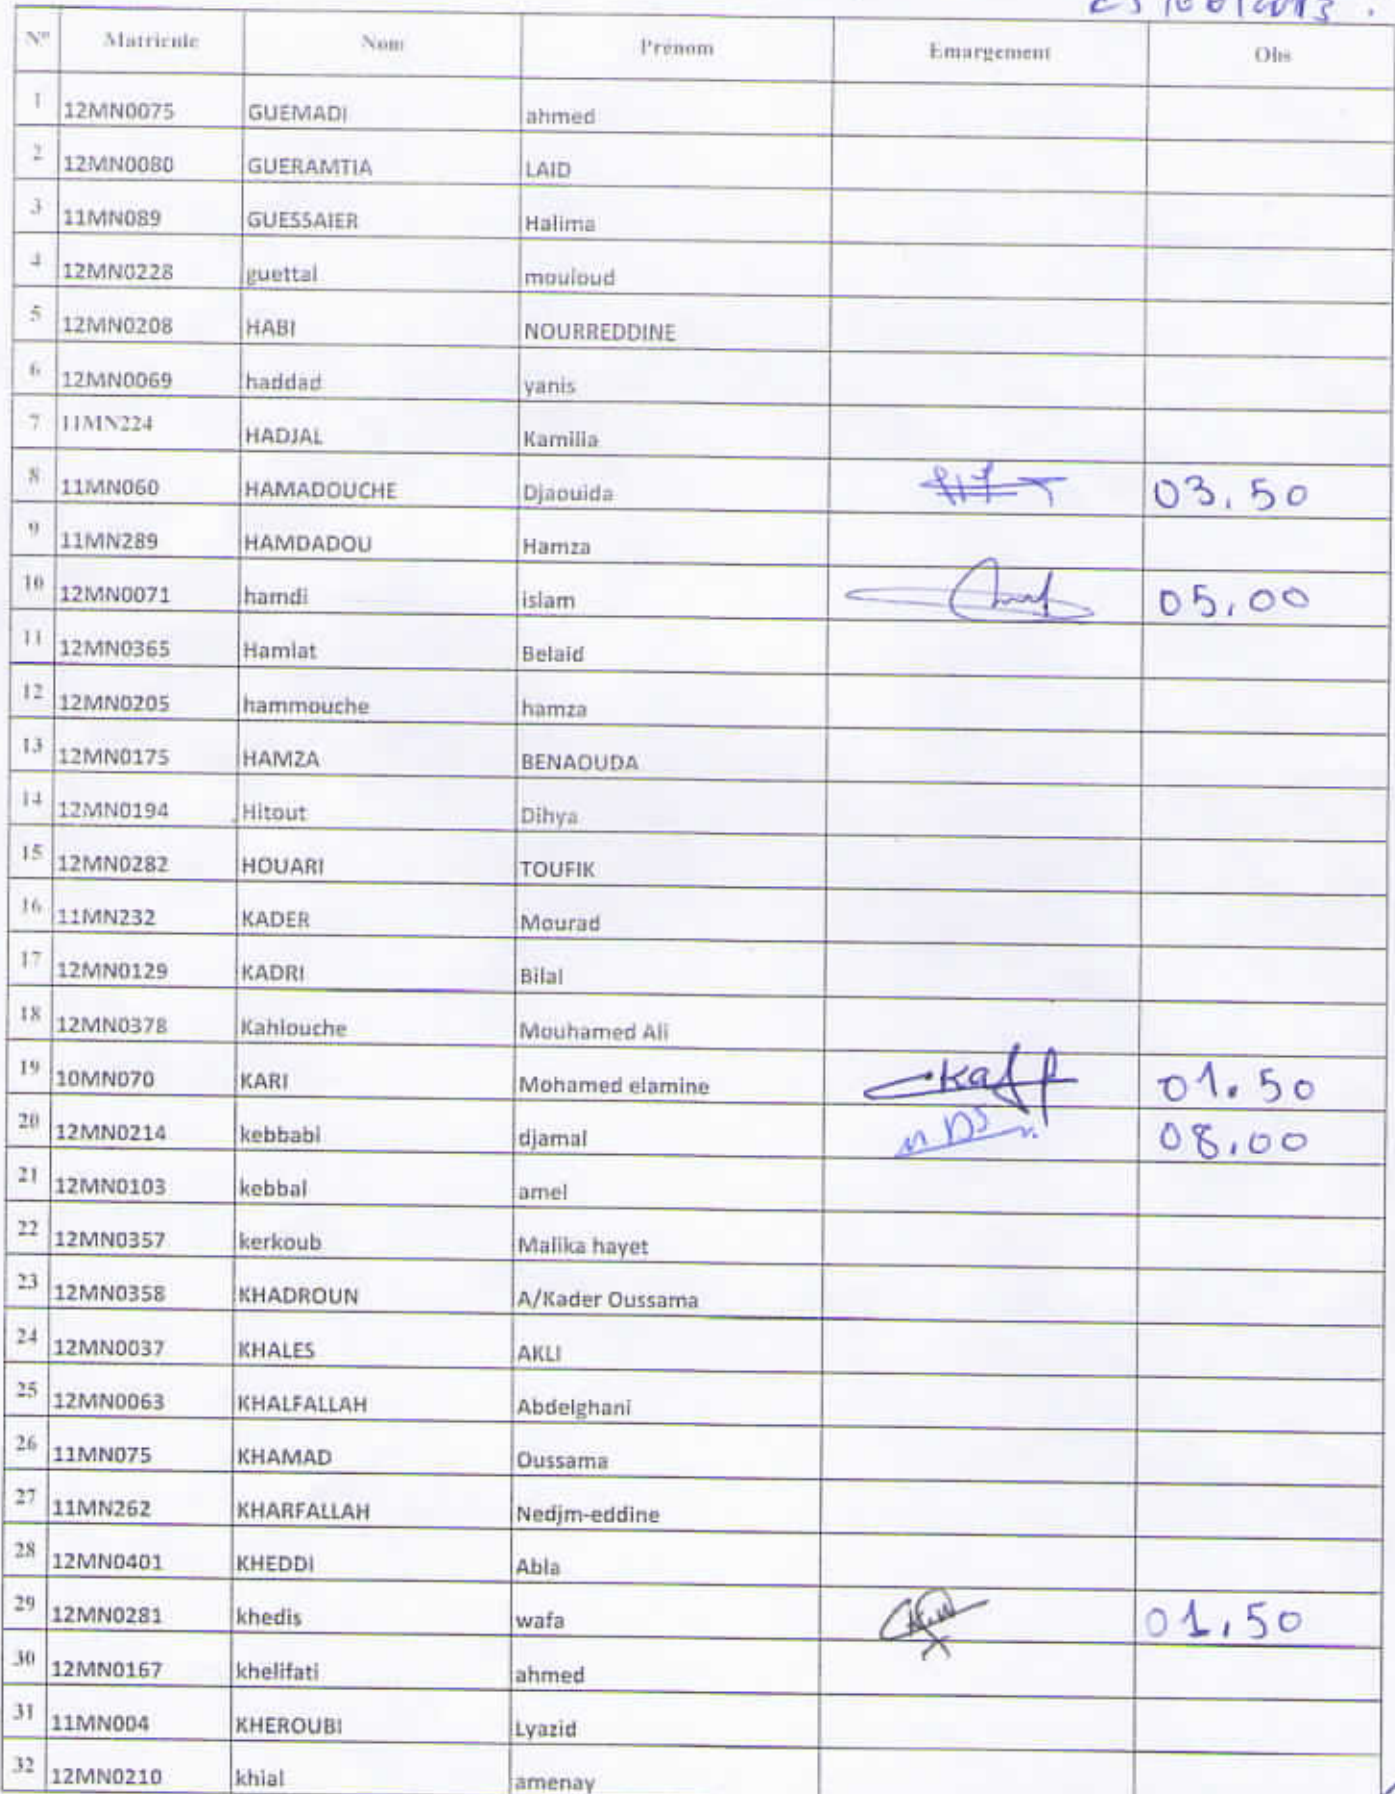 N° Matricule Nom Prénom Emargement Obs
1 12MN0075 GUEMADI ahmed
2 12MN0080 GUERAMTIA LAID
3 11MN089 GUESSAIER Halima
4 12MN0228 guettal mouloud
5 12MN0208 HABI NOURREDDINE
6 12MN0069 haddad yanis
7 11MN224 HADJAL Kamilia
8 11MN060 HAMADOUCHE Djaouida 03,50
9 11MN289 HAMDADOU Hamza
10 12MN0071 hamdi islam 05,00
11 12MN0365 Hamlat Belaid
12 12MN0205 hammouche hamza
13 12MN0175 HAMZA BENAOUDA
14 12MN0194 Hitout Dihya
15 12MN0282 HOUARI TOUFIK
16 11MN232 KADER Mourad
17 12MN0129 KADRI Bilal
18 12MN0378 Kahlouche Mouhamed Ali
19 10MN070 KARI Mohamed elamine 01.50
20 12MN0214 kebbabi djamal 08,00
21 12MN0103 kebbal amel
22 12MN0357 kerkoub Malika hayet
23 12MN0358 KHADROUN A/Kader Oussama
24 12MN0037 KHALES AKLI
25 12MN0063 KHALFALLAH Abdelghani
26 11MN075 KHAMAD Oussama
27 11MN262 KHARFALLAH Nedjm-eddine
28 12MN0401 KHEDDI Abla
29 12MN0281 khedis wafa 01,50
30 12MN0167 khelifati ahmed
31 11MN004 KHEROUBI Lyazid
32 12MN0210 khial amenay